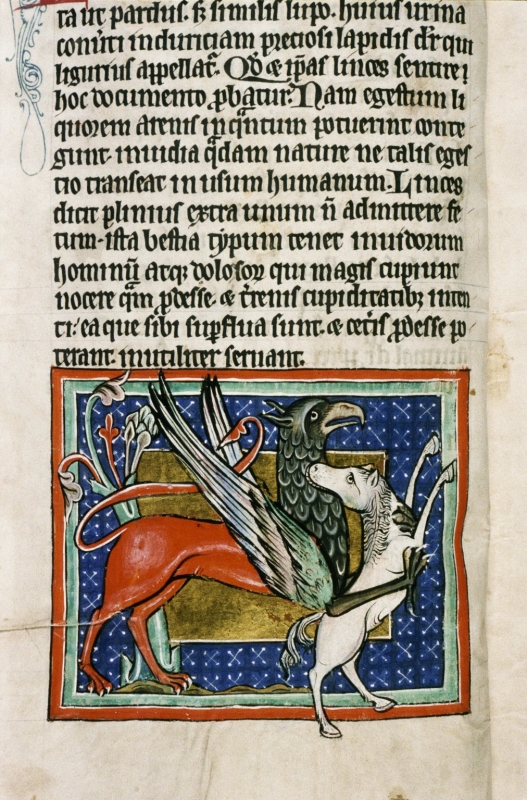 ta ut pardus. sꝫ similis lupo. huius urina
conuͥti in duriciam preciosi lapidis dr̄ qui
ligurius appellat̄. Qd̓ ⁊ ip̄as linces sentire ı
hoc documento ꝓbatur. Nam egestum li
quorem arenis in qͣntum potuerint conte
gunt. inuidia qͣdam nature ne talis eges
tio transeat in usum humanum. Linces
dicit plinius extra unum n̄ admittere fe
tum. ista bestia typum tenet inuidorum
hominū atqꝫ dolosoꝝ qui magis cupiunt
nocere qͣm ꝓdesse. ⁊ t̓renis cupiditatibꝫ inten
ti. ea que sibi suꝑflua sunt. ⁊ cet̓is ꝓdesse po
terant. inutiliter seruant.